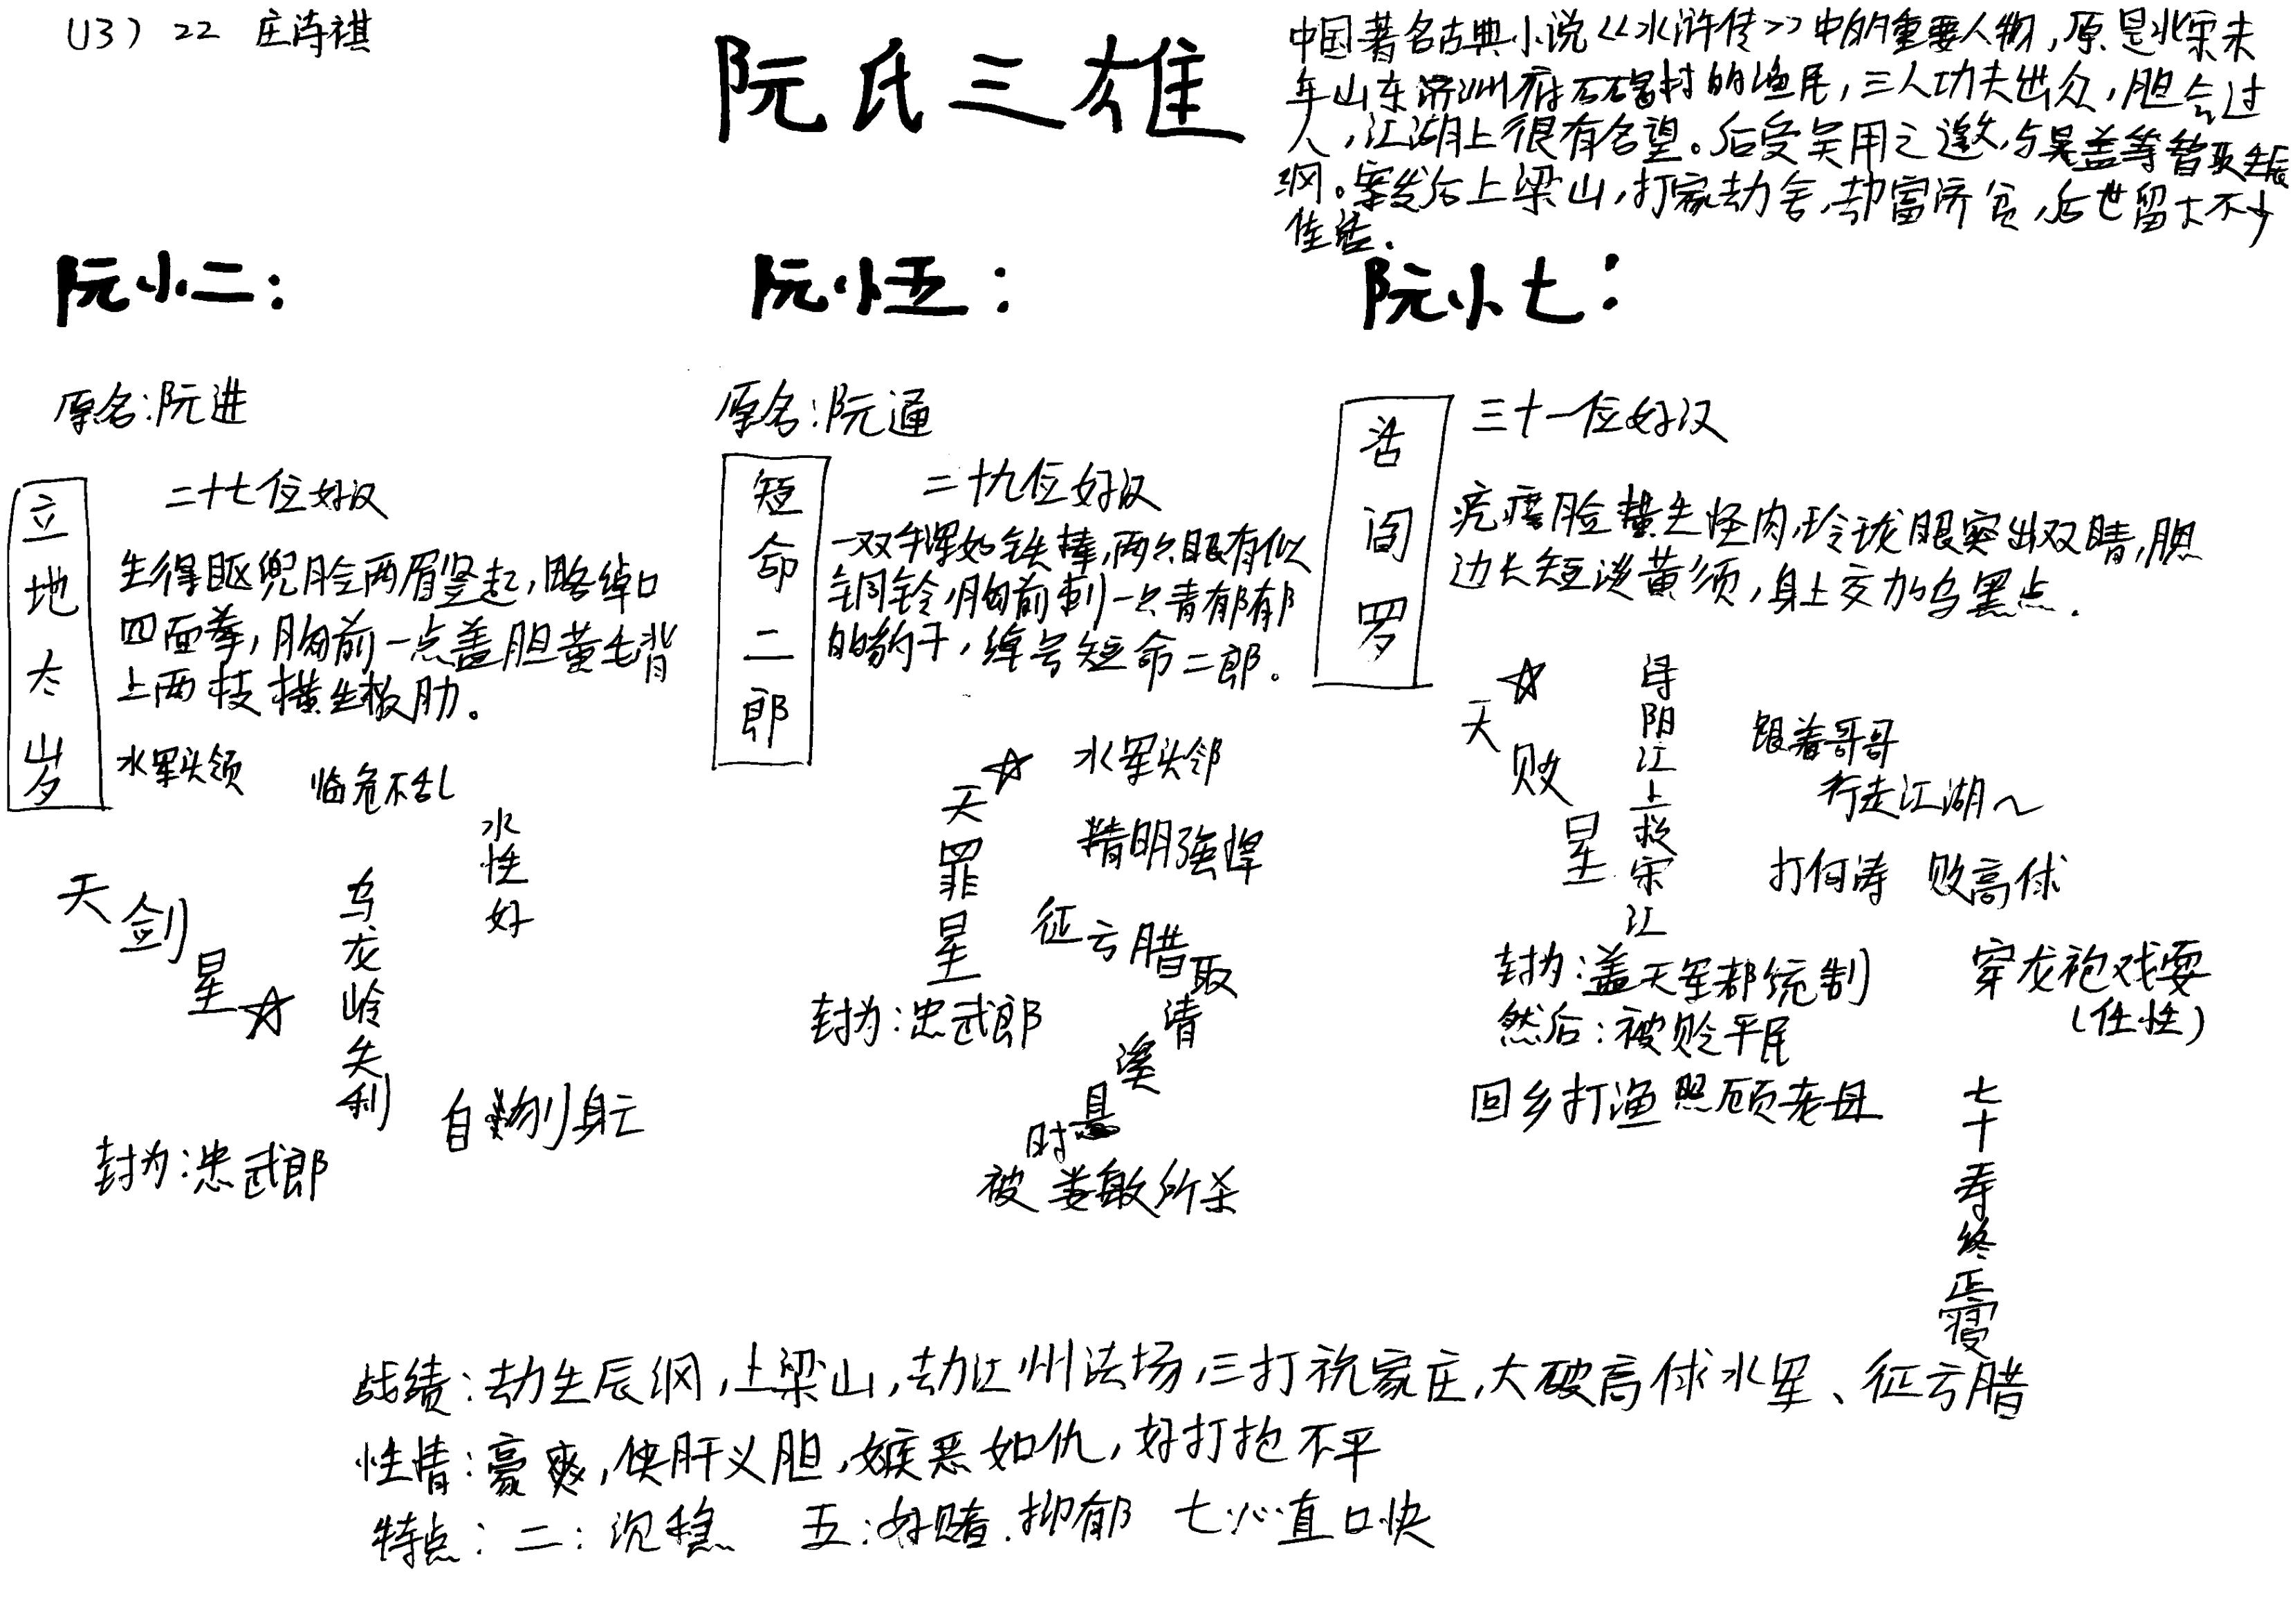 (13) 22 庄诗祺
阮氏三雄
中国著名古典小说《水浒传》中的重要人物,原是北宋末
年山东济洲府石碣村的渔民,三人功夫出众,胆会过
人,江湖上很有名望。后受吴用之邀,与晁盖等智取生辰
纲。案发后上梁山,打家劫舍,劫富济贫,后世留下不少
佳话.
阮小二:
原名:阮进
立地太岁
二十七位好汉
生得眍兜脸两眉竖起,略绰口
四面拳,胸前一点盖胆黄毛背
上两枝横生板肋。
水军头领
临危不乱
水性好
天剑星☆
乌龙岭失利
自刎身亡
封为:忠武郎
阮小五:
原名:阮通
短命二郎
二十九位好汉
一双手浑如铁棒,两只眼有似
铜铃,胸前刺一只青郁郁
的豹子,绰号短命二郎。
天罪星☆
水军头邻
精明强悍
征方腊取清溪县时
被娄敏所杀
封为:忠武郎
阮小七:
活阎罗
三十一位好汉
疙瘩脸横生怪肉,玲珑眼突出双睛,腮
边长短淡黄须,身上交加乌黑点.
☆天败星
浔阳江上救宋江
跟着哥哥
行走江湖~
打何涛 败高俅
封为:盖天军都统制
然后:被贬平民
穿龙袍戏耍
(任性)
回乡打渔照顾老母
七十寿终正寝
战绩:劫生辰纲,上梁山,劫江州法场,三打祝家庄,大破高俅水军、征方腊
性情:豪爽,侠肝义胆,嫉恶如仇,好打抱不平
特点:二:沉稳 五:好赌.抑郁 七:心直口快